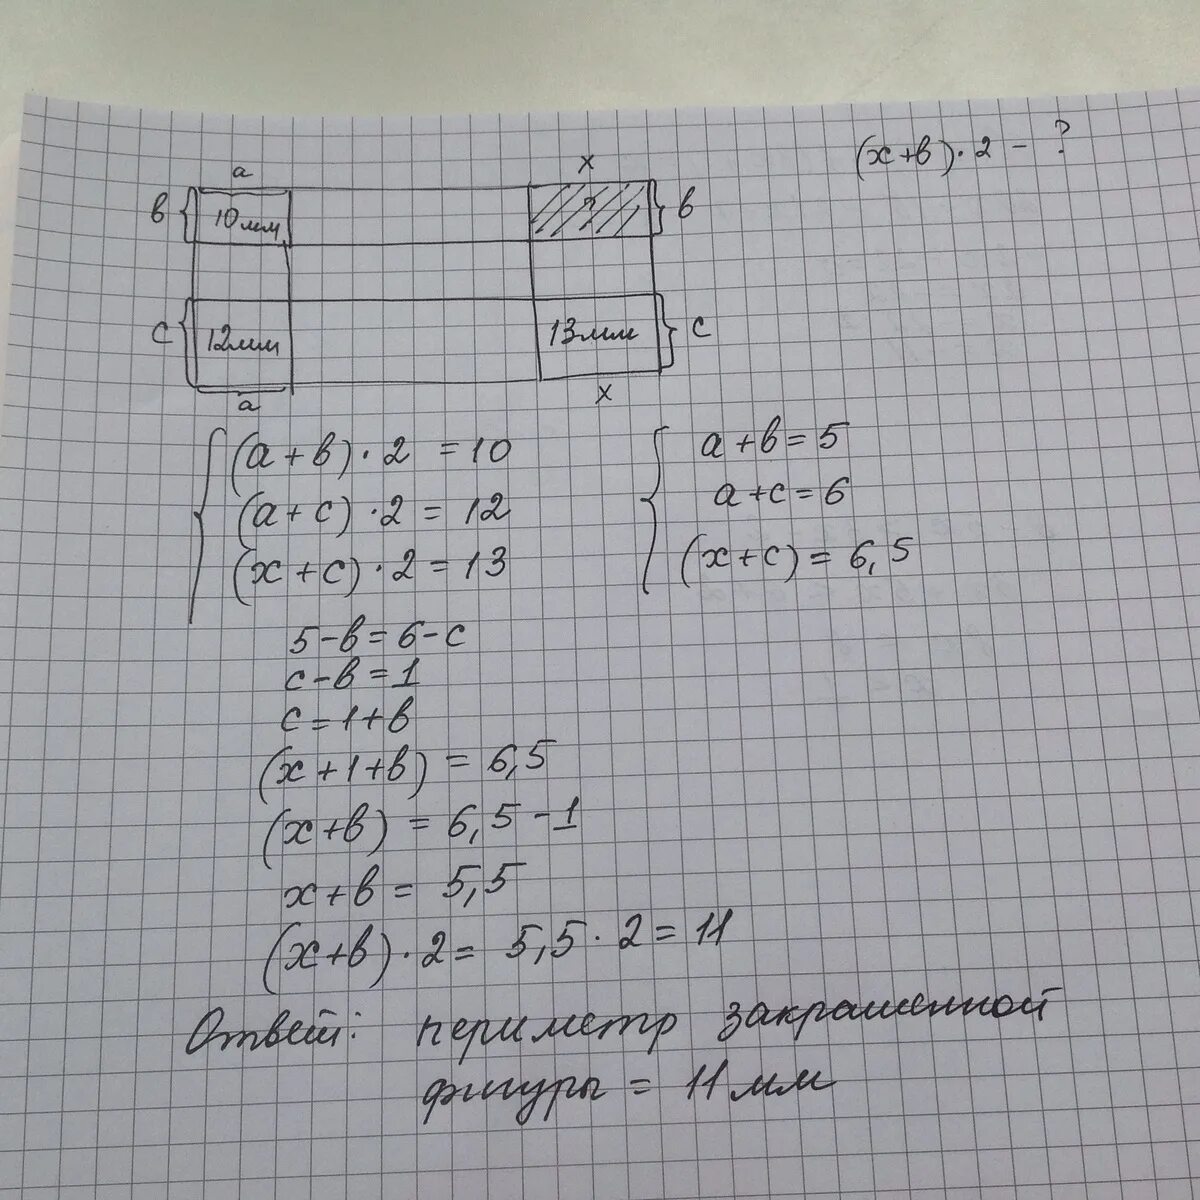 (x+в)·2 - ?
a x
в 10мм ? в
c 12мм 13мм c
a x
(a+в)·2 = 10
(a+c)·2 = 12
(x+c)·2 = 13
a+в=5
a+c=6
(x+c) = 6,5
5-в=6-c
c-в=1
c=1+в
(x+1+в) = 6,5
(x+в) = 6,5-1
x+в = 5,5
(x+в)·2= 5,5·2=11
Ответ: периметр закрашенной
фигуры = 11мм